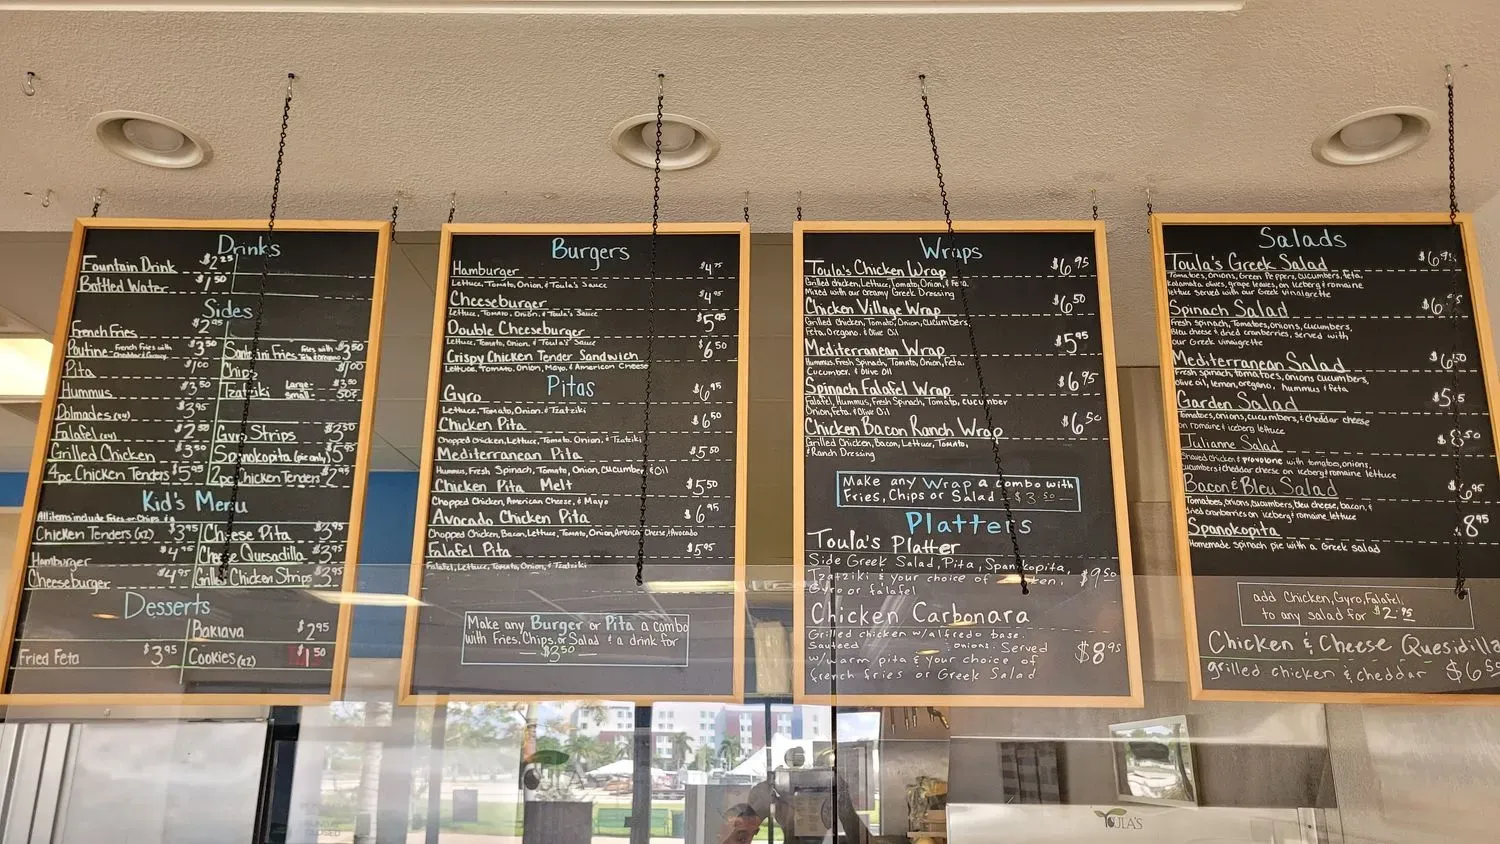 Drinks
Fountain Drink $2.25
Bottled Water $1.50
Sides
French Fries $2.95
Poutine - French Fries with Cheddar & Gravy $3.50
Santorini Fries Fries with Feta & oregano $3.50
Pita $1.00
Chips $1.00
Hummus $3.50
Tzatziki Large - $3.50
small - 50¢
Dolmades (x4) $3.95
Falafel (x4) $2.50
Gyro Strips $3.50
Grilled Chicken $3.50
Spanokopita (pie only) $5.95
4pc Chicken Tenders $5.95
2pc Chicken Tenders $2.95
Kid's Menu
All items include Fries or Chips
Chicken Tenders (x2) $3.95
Cheese Pita $3.95
Hamburger $4.95
Cheese Quesadilla $3.95
Cheeseburger $4.95
Grilled Chicken Strips $3.95
Desserts
Baklava $2.95
Fried Feta $3.95
Cookies (x2) $1.50
Burgers
Hamburger $4.75
Lettuce, Tomato, Onion, & Toula's Sauce
Cheeseburger $4.95
Lettuce, Tomato, Onion, & Toula's Sauce
Double Cheeseburger $5.95
Lettuce, Tomato, Onion, & Toula's Sauce
Crispy Chicken Tender Sandwich $6.50
Lettuce, Tomato, Onion, Mayo, & American Cheese
Pitas
Gyro $6.95
Lettuce, Tomato, Onion, & Tzatziki
Chicken Pita $6.50
Chopped Chicken, Lettuce, Tomato, Onion, & Tzatziki
Mediterranean Pita $5.50
Hummus, Fresh Spinach, Tomato, Onion, Cucumber & Oil
Chicken Pita Melt $5.50
Chopped Chicken, American Cheese, & Mayo
Avocado Chicken Pita $6.95
Chopped Chicken, Bacon, Lettuce, Tomato, Onion, American Cheese, & Avocado
Falafel Pita $5.95
Falafel, Lettuce, Tomato, Onion, & Tzatziki
Make any Burger or Pita a combo
with Fries, Chips, or Salad & a drink for
$3.50
Wraps
Toula's Chicken Wrap $6.95
Grilled chicken, Lettuce, Tomato, Onion, & Feta
Mixed with our creamy Greek Dressing
Chicken Village Wrap $6.50
Grilled Chicken, Tomato, Onion, Cucumbers,
Feta, Oregano, & Olive Oil
Mediterranean Wrap $5.95
Hummus, Fresh Spinach, Tomato, Onion, Feta,
Cucumber, & Olive Oil
Spinach Falafel Wrap $6.95
Falafel, Hummus, Fresh Spinach, Tomato, cucumber
Onion, Feta, & Olive Oil
Chicken Bacon Ranch Wrap $6.50
Grilled Chicken, Bacon, Lettuce, Tomato,
& Ranch Dressing
Make any Wrap a combo with
Fries, Chips or Salad - $3.50
Platters
Toula's Platter
Side Greek Salad, Pita, Spanokopita,
Tzatziki & your choice of
gyro or falafel $9.50
Chicken Carbonara
Grilled chicken w/alfredo base.
Sauteed onions. Served
w/warm pita & your choice of
french fries or Greek Salad $8.95
Salads
Toula's Greek Salad
Tomatoes, Onions, Green Peppers, cucumbers, feta,
kalamata olives, grape leaves, on iceberg & romaine
lettuce served with our Greek vinaigrette
Spinach Salad
Fresh spinach, Tomatoes, onions, cucumbers,
Bleu cheese & dried cranberries, served with
our Greek vinaigrette
Mediterranean Salad $6.50
Fresh spinach, tomatoes, onions cucumbers,
olive oil, lemon, oregano, hummus & feta
Garden Salad
Tomatoes, onions, cucumbers, & cheddar cheese
on romaine & iceberg lettuce
Julianne Salad $8.50
Shaved Chicken & provolone with tomatoes, onions,
cucumbers & cheddar cheese on iceberg & romaine lettuce
Bacon & Bleu Salad $6.95
Tomatoes, onions, cucumbers, bleu cheese, bacon, &
dried cranberries on iceberg & romaine lettuce
Spanokopita $8.95
Homemade spinach pie with a Greek salad
add Chicken, Gyro, Falafel,
to any salad for $2.95
Chicken & Cheese Quesidilla
grilled chicken & cheddar
TOULA'S